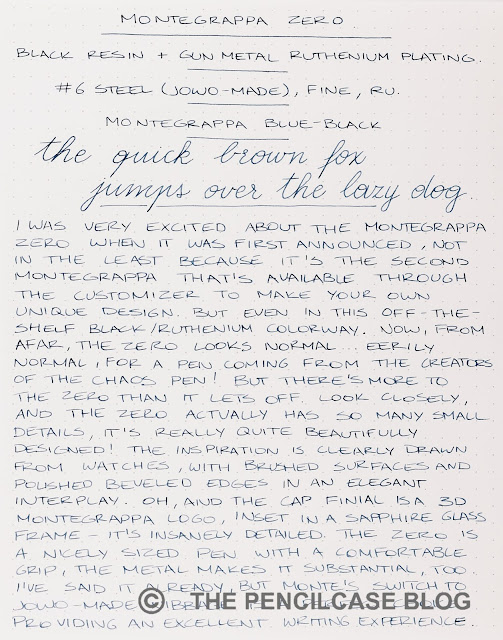 MONTEGRAPPA ZERO
BLACK RESIN + GUN METAL RUTHENIUM PLATING.
#6 STEEL (JOWO-MADE), FINE, RU.
MONTEGRAPPA BLUE-BLACK
the quick brown fox
jumps over the lazy dog.
I WAS VERY EXCITED ABOUT THE MONTEGRAPPA
ZERO WHEN IT WAS FIRST ANNOUNCED, NOT
IN THE LEAST BECAUSE IT'S THE SECOND
MONTEGRAPPA THAT'S AVAILABLE THROUGH
THE CUSTOMIZER TO MAKE YOUR OWN
UNIQUE DESIGN. BUT EVEN IN THIS OFF-THE-
SHELF BLACK/RUTHENIUM COLORWAY. NOW, FROM
AFAR, THE ZERO LOOKS NORMAL... EERILY
NORMAL, FOR A PEN COMING FROM THE CREATORS
OF THE CHAOS PEN! BUT THERE'S MORE TO
THE ZERO THAN IT LETS OFF. LOOK CLOSELY,
AND THE ZERO ACTUALLY HAS SO MANY SMALL
DETAILS, IT'S REALLY QUITE BEAUTIFULLY
DESIGNED! THE INSPIRATION IS CLEARLY DRAWN
FROM WATCHES, WITH BRUSHED SURFACES AND
POLISHED BEVELED EDGES IN AN ELEGANT
INTERPLAY. OH, AND THE CAP FINIAL IS A 3D
MONTEGRAPPA LOGO, INSET IN A SAPPHIRE GLASS
FRAME - IT'S INSANELY DETAILED. THE ZERO IS
A NICELY SIZED PEN WITH A COMFORTABLE
GRIP, THE METAL MAKES IT SUBSTANTIAL, TOO.
I'VE SAID IT ALREADY, BUT MONTE'S SWITCH TO
JOWO-MADE
© THE PENCILCASE BLOG
PROVIDING AN EXCELLENT WRITING EXPERIENCE.